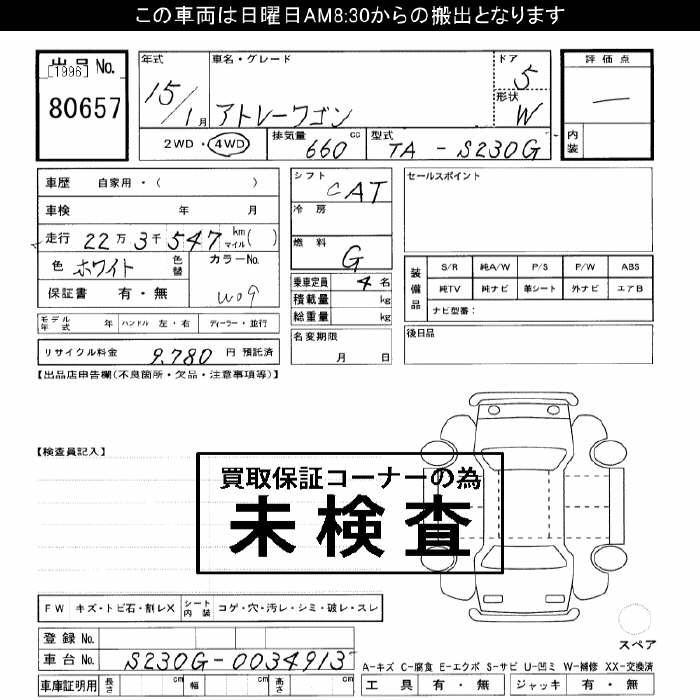 この車両は日曜日AM8:30からの搬出となります
出品 No.
[1996]
80657
年式
15/1月
車名・グレード
アトレーワゴン
ドア
5
形状
W
評価点
—
内装
2WD・4WD
排気量
660 cc
型式
TA - S230G
車歴 自家用・( )
車検 年 月
走行 22万 3千 547 km マイル ( )
色 ホワイト 色替
カラーNo.
W09
保証書 有・無
シフト
CAT
冷房
燃料
G
乗車定員 4 名
積載量 kg
総重量 kg
セールスポイント
装備品
S/R 純A/W P/S P/W ABS
純TV 純ナビ 革シート 外ナビ エアB
ナビ型番:
モデル年式 年 ハンドル 左・右 ディーラー・並行
リサイクル料金 9.780 円 預託済
名変期限
月 日
後日品
【出品店申告欄(不良箇所・欠品・注意事項等)】
【検査員記入】
買取保証コーナーの為
未検査
FW キズ・トビ石・割レX シート内装 コゲ・穴・汚レ・シミ・破レ・スレ
登録 No.
車台 No. S230G-0034913
車庫証明用 長さ cm 幅 cm 高さ cm
スペア
A-キズ C-腐食 E-エクボ S-サビ U-凹ミ W-補修 XX-交換済
工具 有・無 ジャッキ 有・無